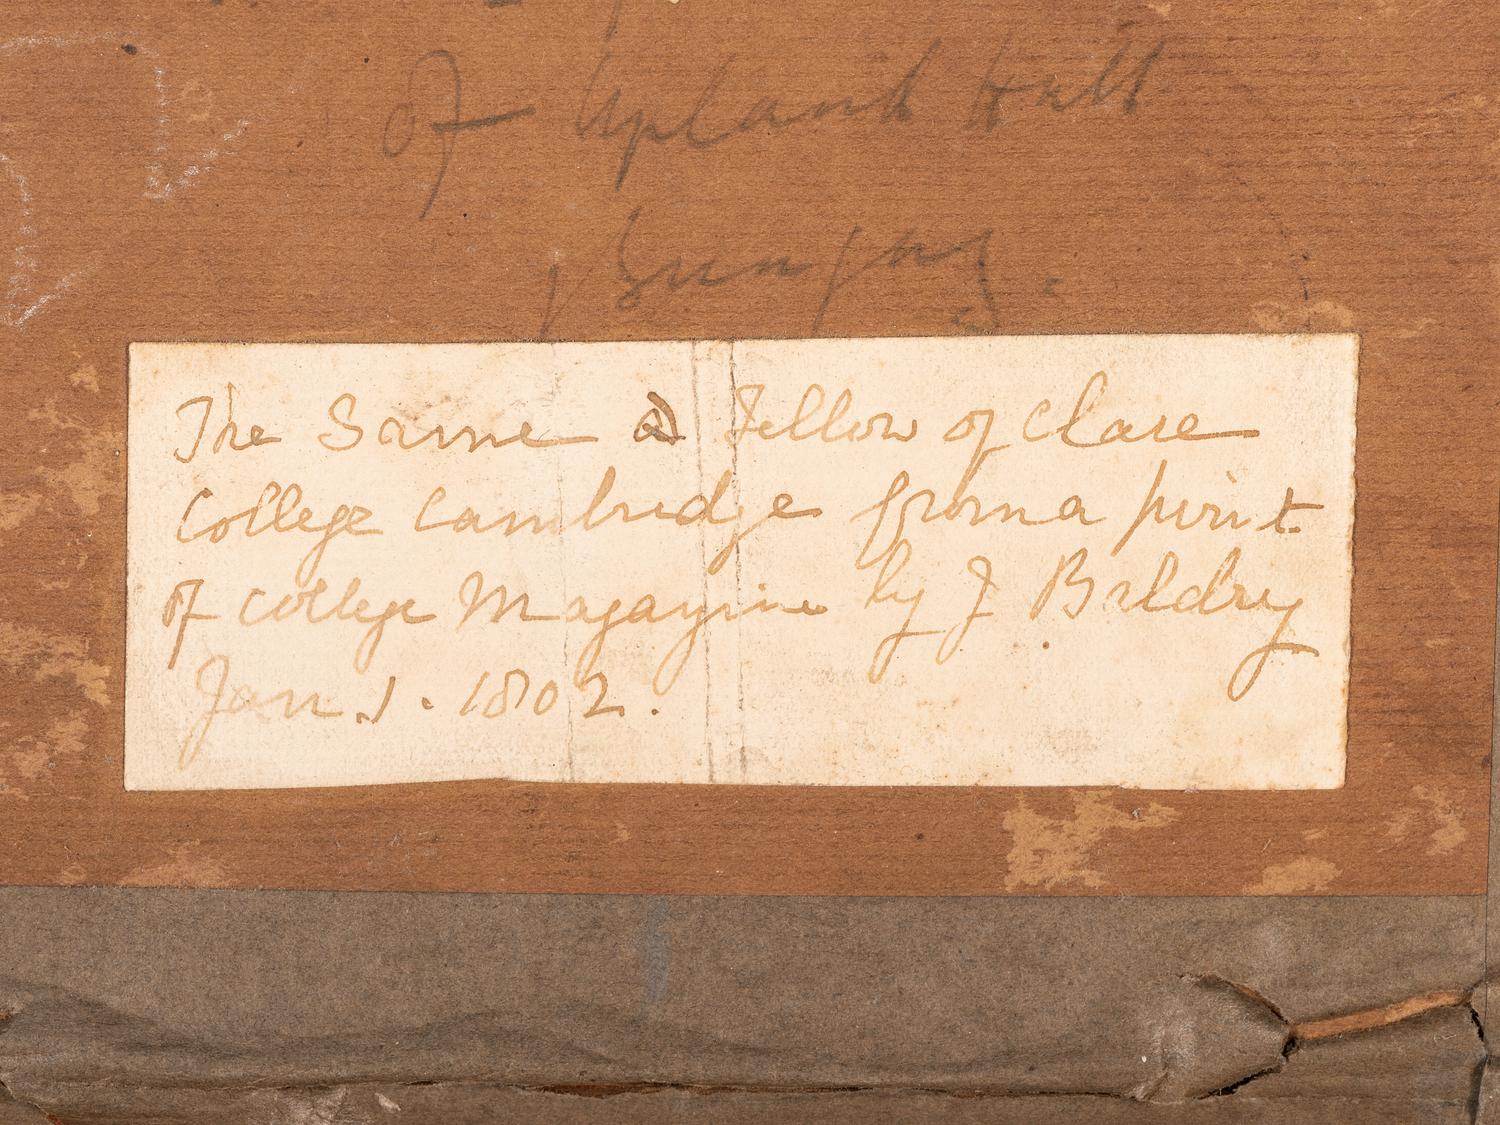 of Upland Hall
Bungay.
The Same a Fellow of Clare
College Cambridge from a print
of College Magazine by J Baldrey
Jan. 1. 1802.